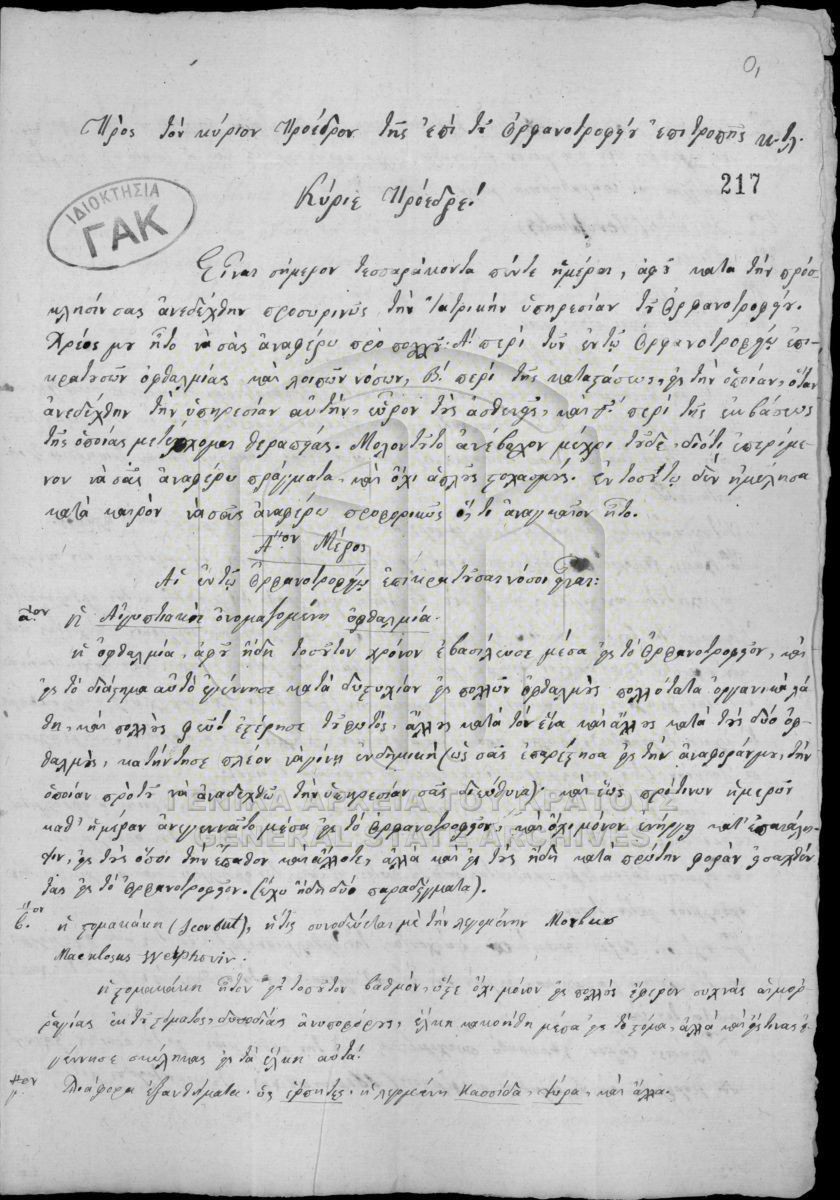 0,
Πρὸς τὸν κύριον Πρόεδρον τῆς ἐπὶ τοῦ Ὀρφανοτροφείου ἐπιτροπῆς κ.τλ.
217
ΙΔΙΟΚΤΗΣΙΑ
ΓΑΚ
Κύριε Πρόεδρε!
Εἶναι σήμερον τεσσαράκοντα πέντε ἡμέραι, ἀφοῦ κατὰ τὴν πρόσ-
κλησίν σας ἀνεδέχθην προσωρινῶς τὴν Ἰατρικὴν ὑπηρεσίαν τοῦ Ὀρφανοτροφείου.
Χρέος μου ἦτο νὰ σᾶς ἀναφέρω πρὸ πολλοῦ. Α! περὶ τῶν ἐν τῷ Ὀρφανοτροφείῳ ἐπι-
κρατουσῶν ὀφθαλμίας καὶ λοιπῶν νόσων, Β! περὶ τῆς καταστάσεως, εἰς τὴν ὁποίαν, ὅταν
ἀνεδέχθην τὴν ὑπηρεσίαν αὐτήν, εὗρον τοὺς ἀσθενεῖς, καὶ Γ! περὶ τῆς ἐκβάσεως
τῆς ὁποίας μετέρχομαι θεραπείας. Μολοντοῦτο ἀνέβαλον μέχρι τοῦδε, διότι ἐπερίμε-
νον νὰ σᾶς ἀναφέρω πράγματα, καὶ ὄχι ἁπλοῦς στοχασμούς. ἐν τοσούτῳ δὲν ἠμέλησα
κατὰ καιρὸν νὰ σᾶς ἀναφέρω προφορικῶς ὅ,τι ἀναγκαῖον ἦτο.
Α.ον Μέρος
Αἱ ἐν τῷ Ὀρφανοτροφείῳ ἐπικρατοῦσαι νόσοι εἶναι:
α.ον ἡ Αἰγυπτιακὴ ὀνομαζομένη ὀφθαλμία.
ἡ ὀφθαλμία, ἀφοῦ ἤδη τοσοῦτον χρόνον ἐβασίλευσε μέσα εἰς τὸ Ὀρφανοτροφεῖον, καὶ
εἰς τὸ διάστημα αὐτὸ ἐγέννησε κατὰ δυστυχίαν εἰς πολλῶν ὀφθαλμοὺς πολλότατα ὀργανικὰ πά-
θη, καὶ πολλοὺς φεῦ! ἐστέρησε τοῦ φωτός, ἄλλους κατὰ τὸν ἕνα καὶ ἄλλους κατὰ τοὺς δύο ὀφ-
θαλμούς, κατήντησε πλέον νὰ γίνῃ ἐνδημική (ὡς σᾶς ἐπαρέστησα εἰς τὴν ἀναφοράν μου, τὴν
ὁποίαν πρὸ τοῦ νὰ ἀναδεχθῶ τὴν ὑπηρεσίαν σᾶς διεύθυνα)· καὶ ἕως πρό τινων ἡμερῶν
καθ' ἡμέραν ἀνεγεννᾶτο μέσα εἰς τὸ Ὀρφανοτροφεῖον, καὶ ὄχι μόνον ἐνήργει κατ' ἐπανάλη-
ψιν, εἰς τοὺς ὅσοι τὴν ἔπαθον καὶ ἄλλοτε, ἀλλὰ καὶ εἰς τοὺς ἤδη κατὰ πρώτην φορὰν εἰσαχθέν-
τας εἰς τὸ Ὀρφανοτροφεῖον. (ἔχω ἤδη δύο παραδείγματα).
β.ον ἡ στομακάκη (Scorbut), ἥτις συνοδεύεται μὲ τὴν λεγομένην Morbus
Maculosus Werlhovii.
ἡ στομακάκη ἦτον εἰς τοσοῦτον βαθμόν, ὥστε ὄχι μόνον εἰς πολλοὺς ἔφερεν συχνὰς αἱμορ-
ραγίας ἐκ τοῦ στόματος, δυσωδίας ἀνυποφόρους, ἕλκη κακοήθη μέσα εἰς τὸ στόμα, ἀλλὰ καὶ εἴς τινας ἐ-
γέννησε σκώληκας εἰς τὰ ἕλκη αὐτά!
γ.ον Διάφορα ἐξανθήματα· ὡς ἕρπητες, ἡ λεγομένη Κασσίδα, ψώρα, καὶ ἄλλα.
ΓΕΝΙΚΑ ΑΡΧΕΙΑ ΤΟΥ ΚΡΑΤΟΥΣ
GENERAL STATE ARCHIVES